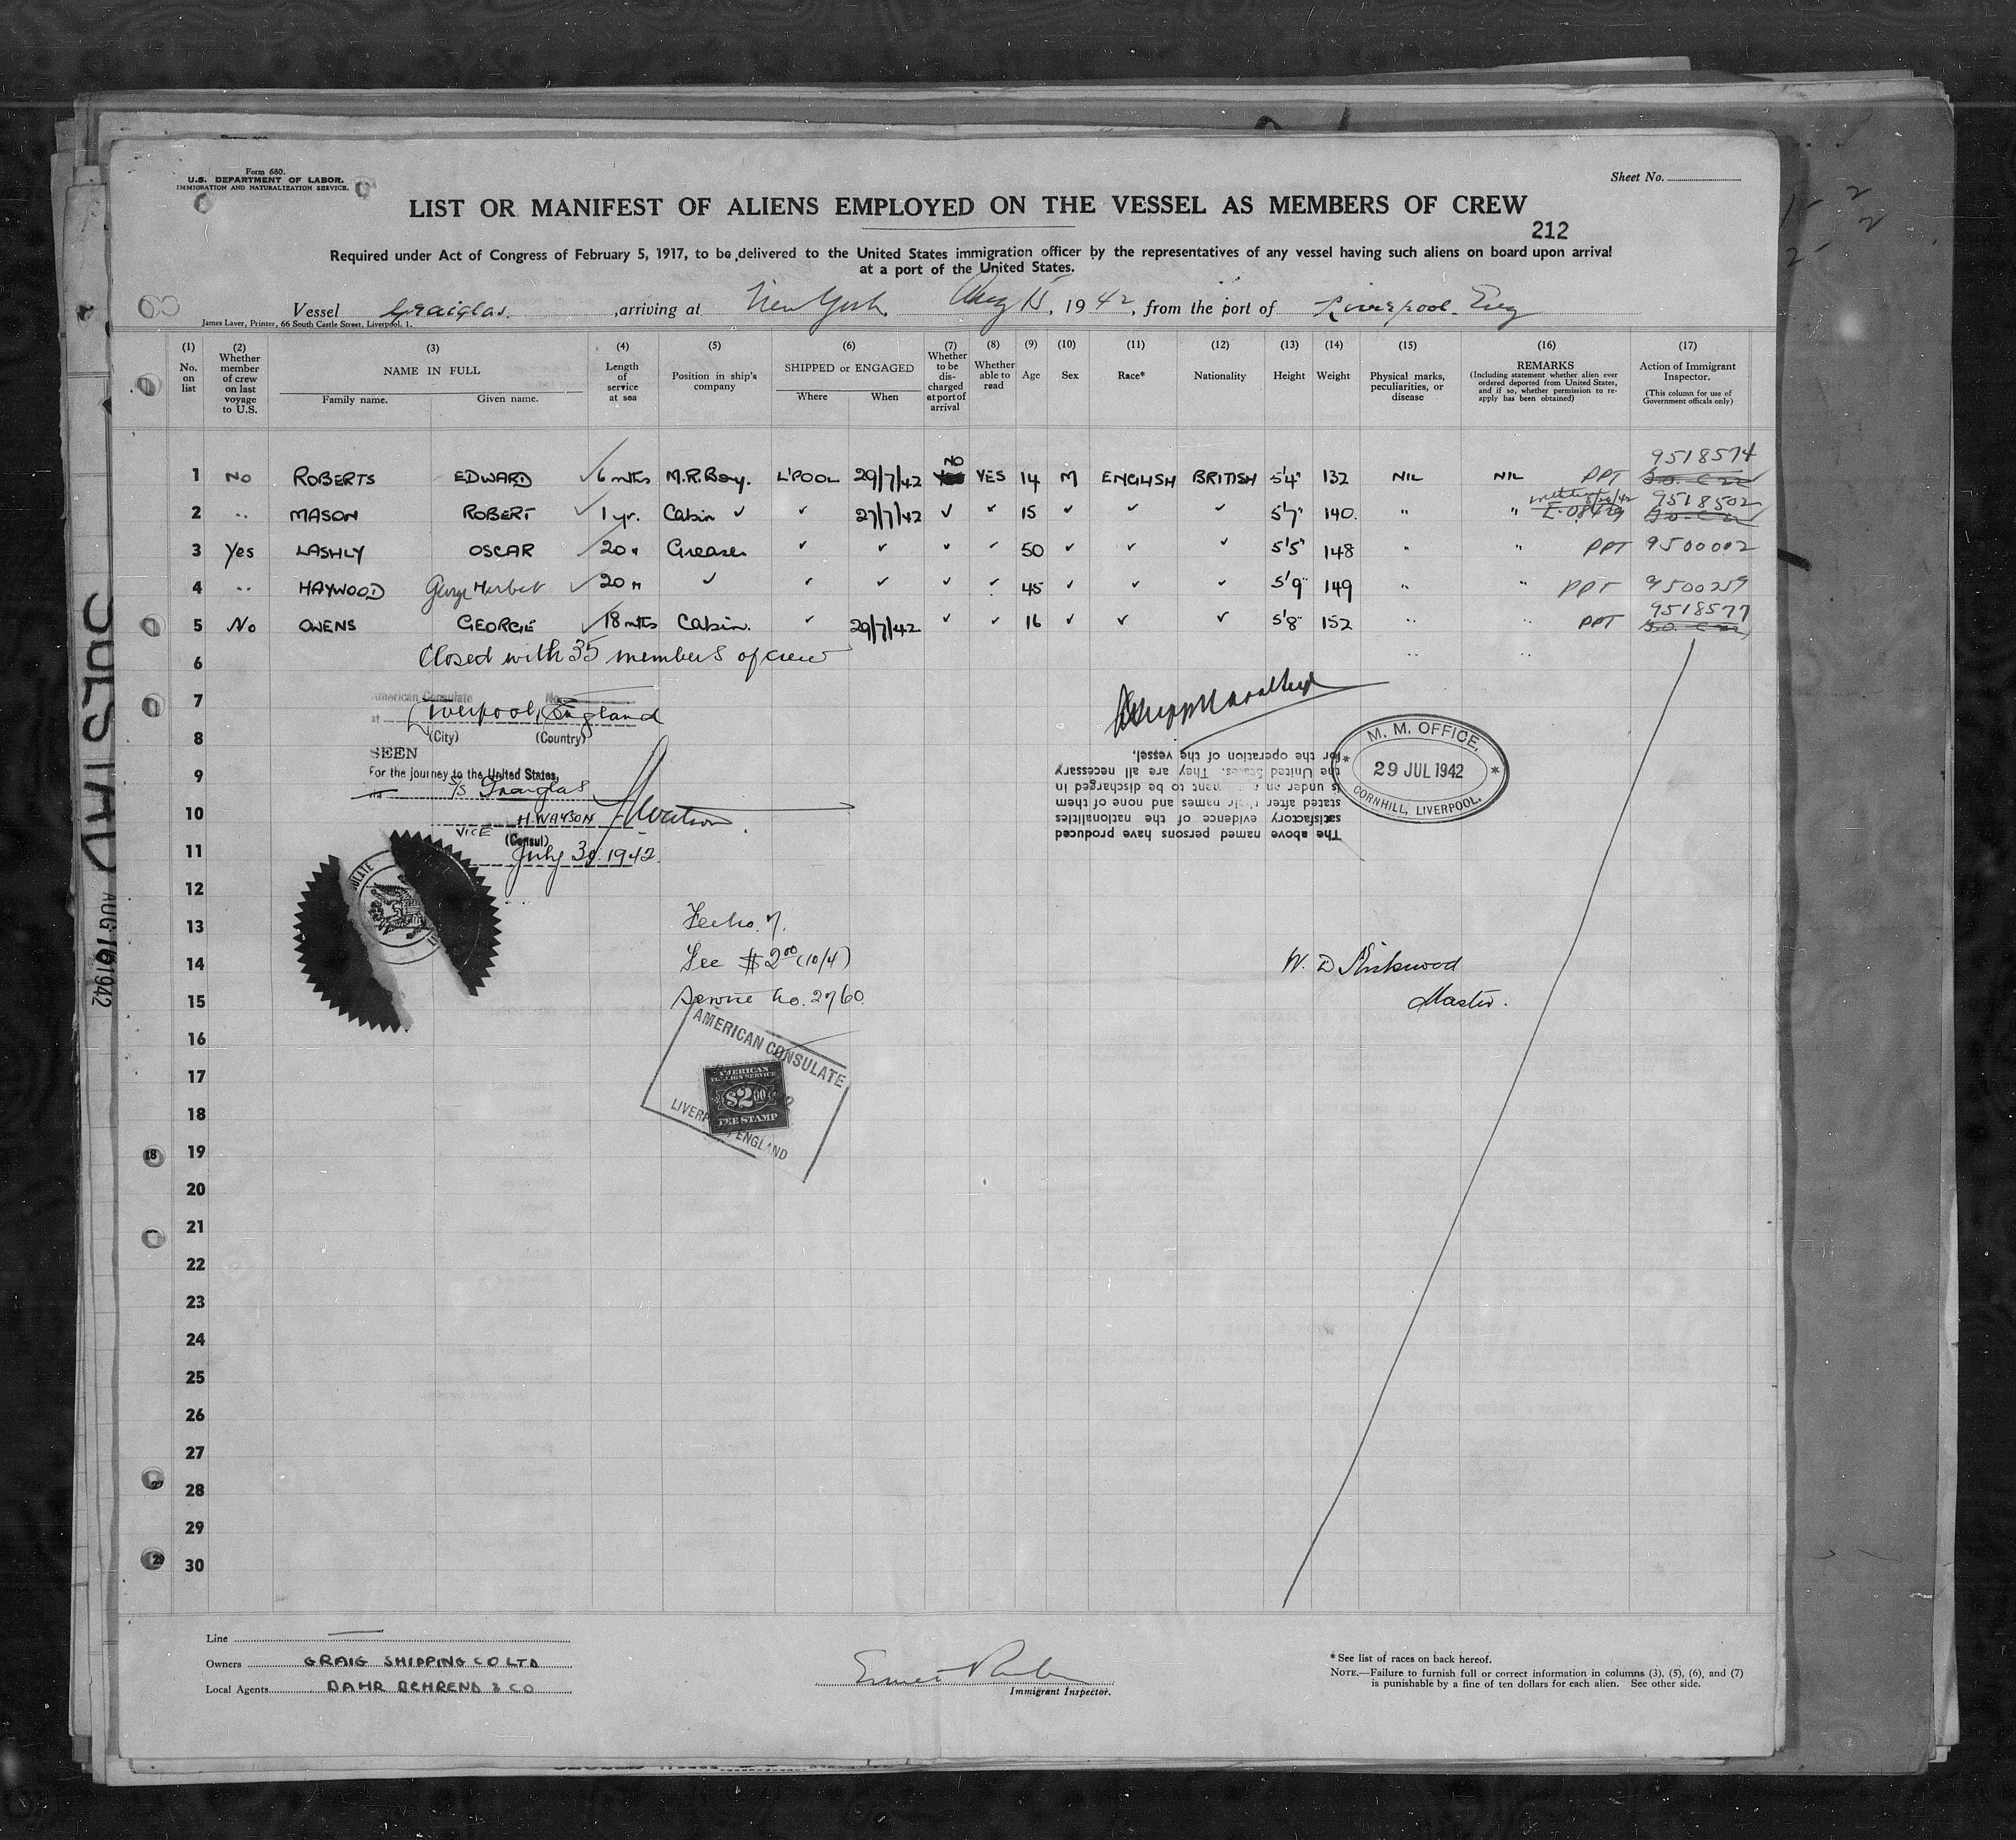 Form 680.
U.S. DEPARTMENT OF LABOR.
IMMIGRATION AND NATURALIZATION SERVICE.
Sheet No.
LIST OR MANIFEST OF ALIENS EMPLOYED ON THE VESSEL AS MEMBERS OF CREW
212
Required under Act of Congress of February 5, 1917, to be delivered to the United States immigration officer by the representatives of any vessel having such aliens on board upon arrival
at a port of the United States.
Vessel Graiglas. , arriving at New York, Aug 15, 1942, from the port of Liverpool. Eng
James Laver, Printer, 66 South Castle Street, Liverpool, 1.
(1) No. on list (2) Whether member of crew on last voyage to U.S. (3) NAME IN FULL Family name. Given name. (4) Length of service at sea (5) Position in ship's company (6) SHIPPED or ENGAGED Where When (7) Whether to be discharged at port of arrival (8) Whether able to read (9) Age (10) Sex (11) Race* (12) Nationality (13) Height (14) Weight (15) Physical marks, peculiarities, or disease (16) REMARKS (Including statement whether alien ever ordered deported from United States, and if so, whether permission to re-apply has been obtained) (17) Action of Immigrant Inspector. (This column for use of Government officals only)
1 No ROBERTS EDWARD ✓ 6 mths M.R. Boy. L'POOL 29/7/42 NO YES 14 M ENGLISH BRITISH 5'4" 132 NIL NIL PPT 9518574
2 " MASON ROBERT ✓ 1 yr. Cabin ✓ ✓ 27/7/42 ✓ " 15 ✓ ✓ ✓ 5'7" 140. " " 9518502
3 Yes LASHLY OSCAR ✓ 20 " Greaser ✓ ✓ ✓ ✓ 50 ✓ ✓ ✓ 5'5" 148 " " PPT 9500002
4 " HAYWOOD George Herbert ✓ 20 " ✓ ✓ ✓ ✓ ✓ 45 ✓ ✓ ✓ 5'9" 149 " " PPT 9500259
5 No OWENS GEORGE ✓ 18 mths Cabin. ✓ 29/7/42 ✓ ✓ 16 ✓ ✓ ✓ 5'8" 152 " " PPT 9518577
6 Closed with 35 members of crew " "
7
8
9
10
11
12
13
14
15
16
17
18
19
20
21
22
23
24
25
26
27
28
29
30
American Consulate No.
at Liverpool, England
(City) (Country)
SEEN
For the journey to the United States,
s/s Graiglas
H. WATSON
VICE (Consul)
July 30 1942
The above named persons have produced
satisfactory evidence of the nationalities
stated after their names and none of them
is under an agreement to be discharged in
the United States. They are all necessary
for the operation of the vessel,
M. M. OFFICE,
29 JUL 1942
CORNHILL, LIVERPOOL.
Fee No. 7.
Fee $2.00 (10/4)
Service No. 2760.
W. D Kirkwood
Master.
AMERICAN CONSULATE
LIVERPOOL, ENGLAND
AMERICAN
FOREIGN SERVICE
$2.00
FEE STAMP
AUG 16 1942
18
27
29
Line
Owners GRAIG SHIPPING CO LTD
Local Agents BAHR BEHREND & CO
Immigrant Inspector.
* See list of races on back hereof.
NOTE.—Failure to furnish full or correct information in columns (3), (5), (6), and (7)
is punishable by a fine of ten dollars for each alien. See other side.